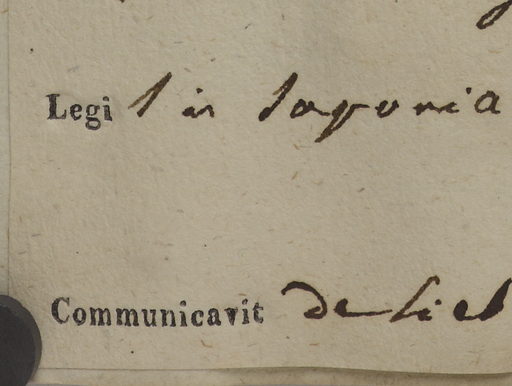 Legi in Saxonia
Communicavit de